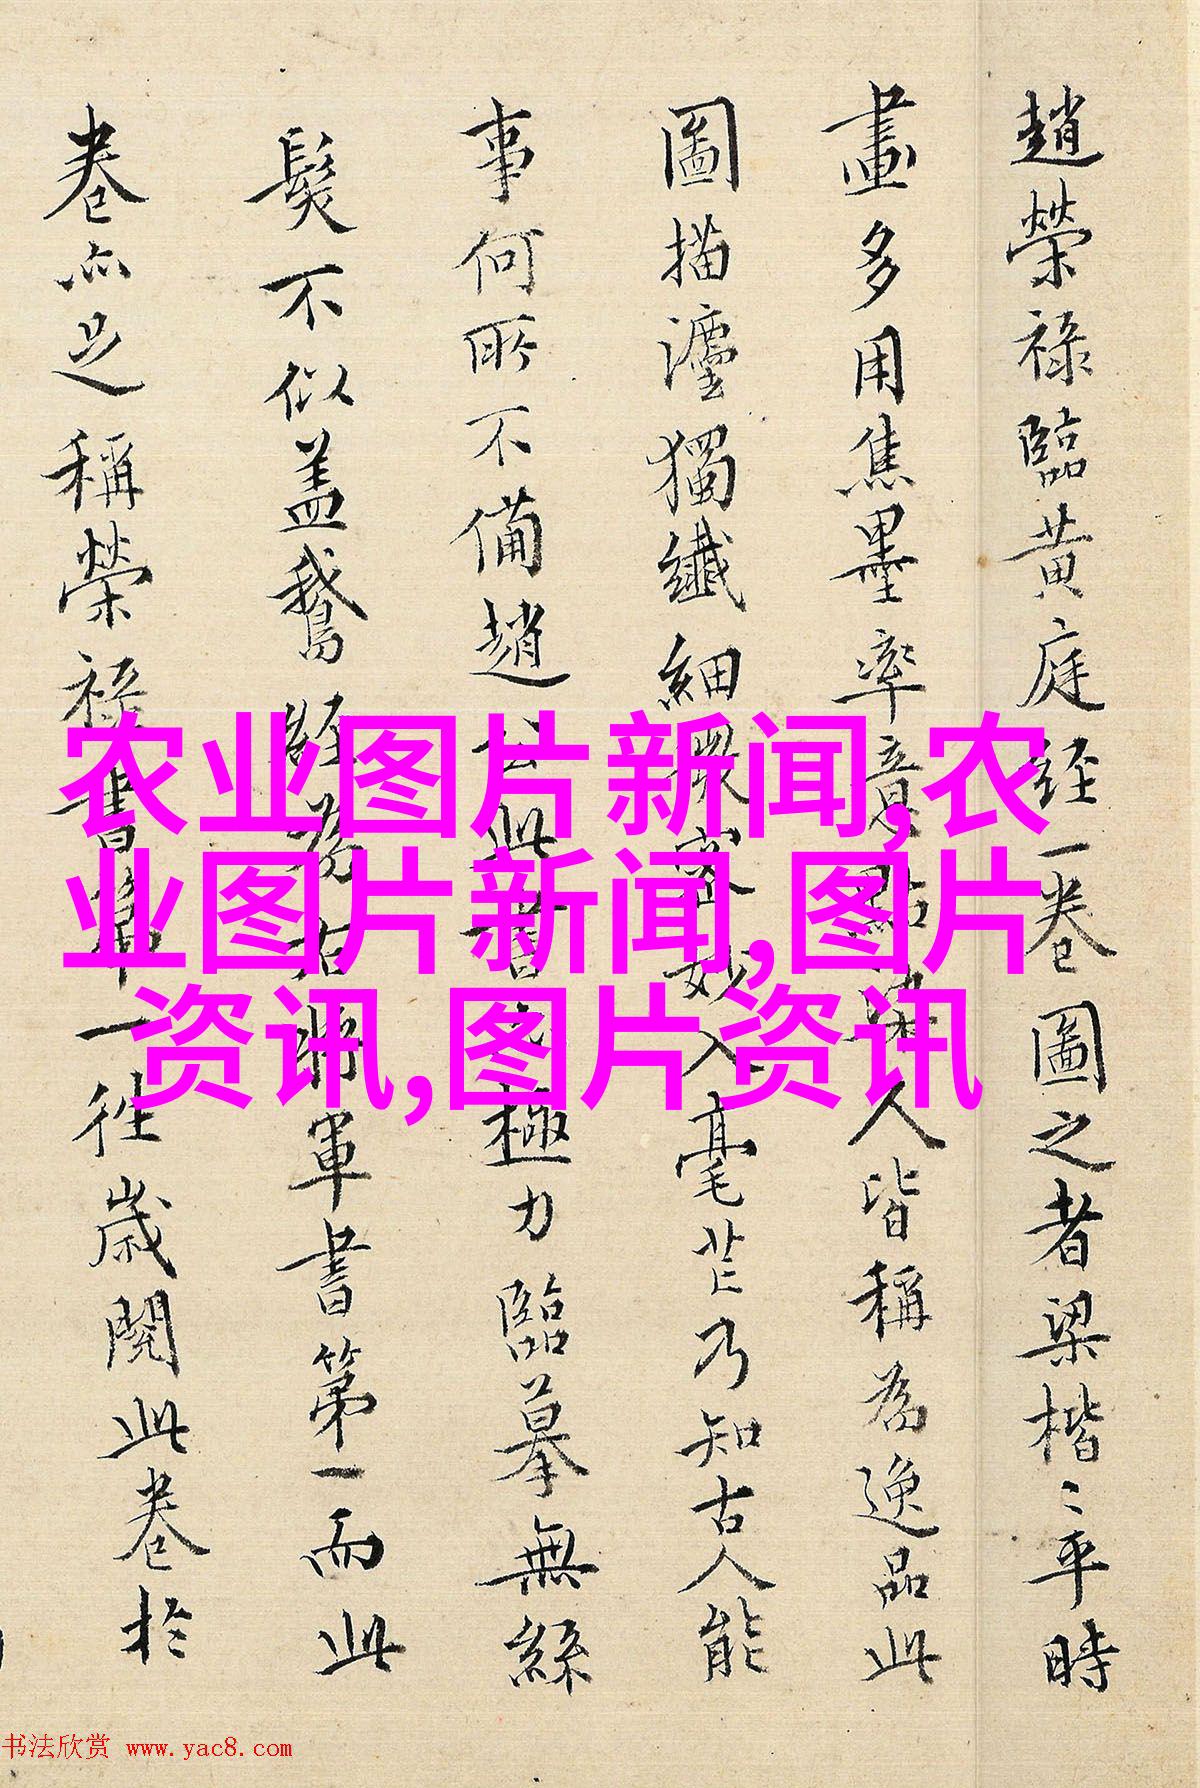 趙榮祿臨黃庭經一卷圖之者梁楷〻平時
畫多用焦墨率意點染人皆稱為逸品此
圖描瀍獨纖細稠密妙入毫芒乃知古人能
事何所不備趙公此書亦極力臨摹無絲
髮不似蓋鵞經為右將軍書第一而此
卷亦足稱榮祿書第一往歲閱此卷於
农业图片新闻,农
业图片新闻,图片
资讯,图片资讯
书法欣赏 www.yac8.com